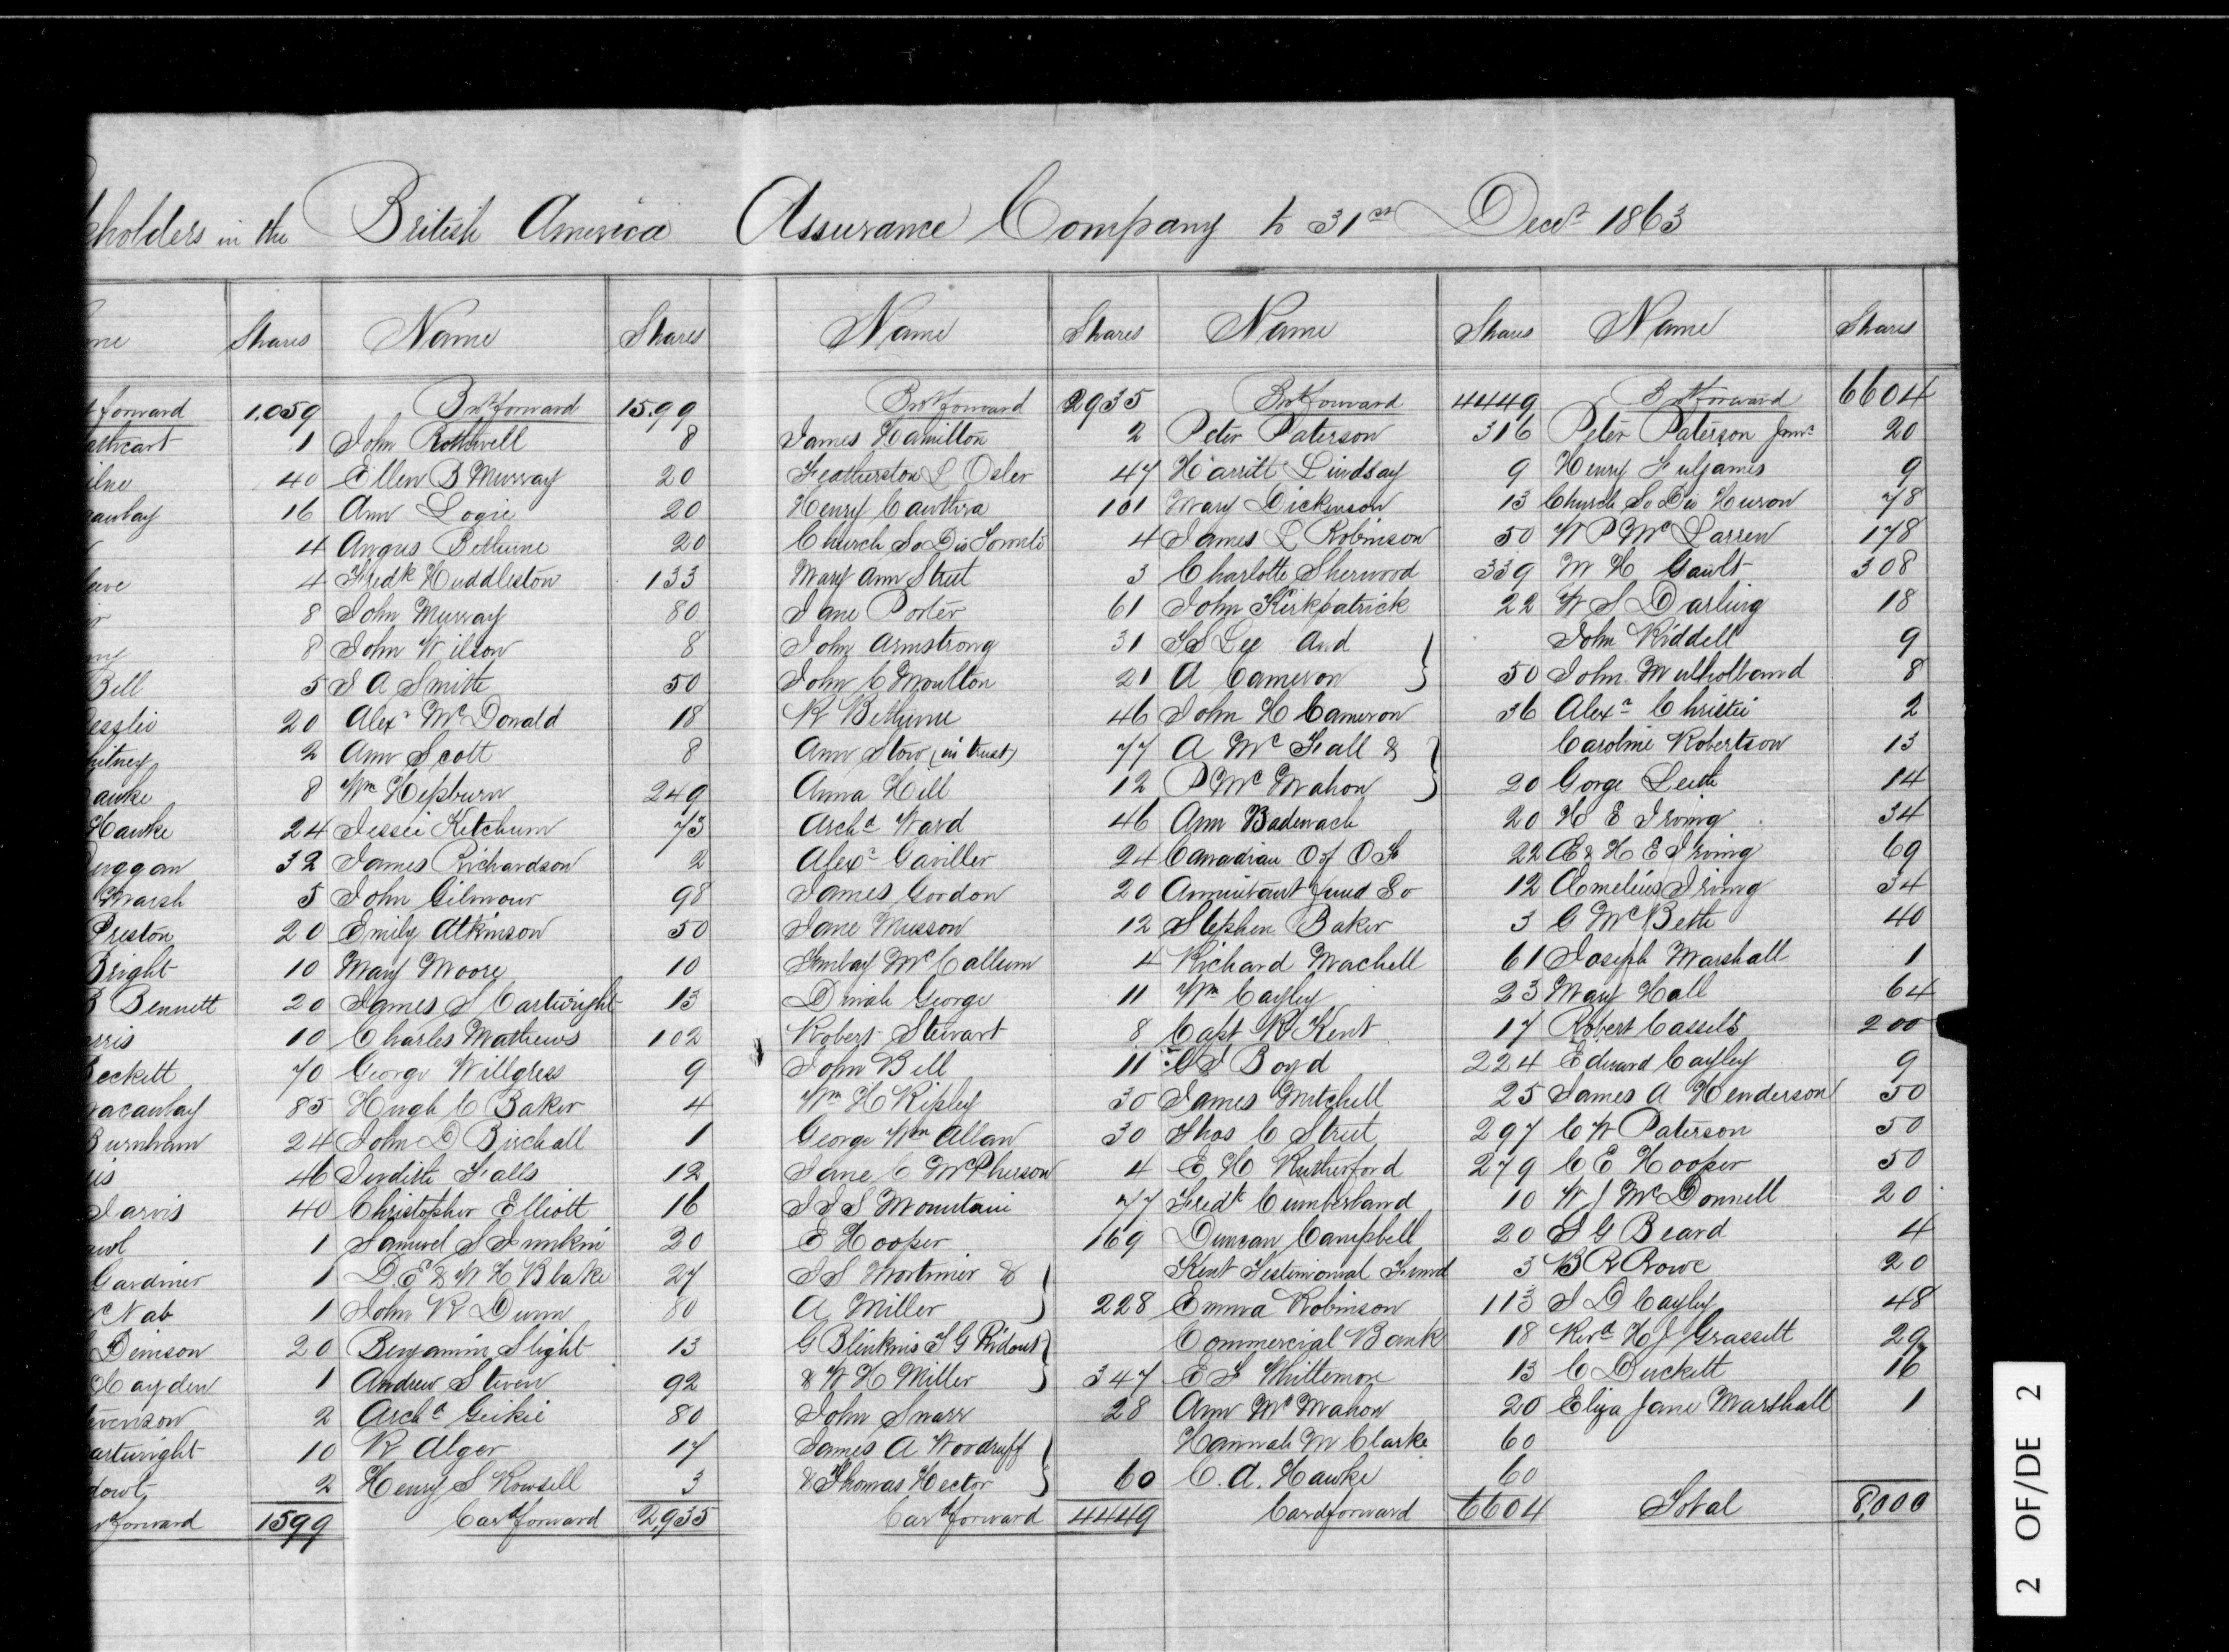 holders in the British America Assurance Company to 31st Decr 1863
Shares Name Shares Name Shares Name Shares Name Shares
forward 1,059 Brt forward 15,99 Brt forward 2935 Brt forward 4449 Brt forward 6604
1 John Rothwell 8 James Hamilton 2 Peter Paterson 316 Peter Paterson Junr 20
40 Ellen B Murray 20 Featherston L Osler 47 Harritt Lindsay 9 Henry Fuljames 9
16 Ann Logie 20 Henry Cawthra 101 Mary Dickenson 13 Church So Dio Huron 78
4 Angus Bethune 20 Church So Dio Toronto 4 James L Robinson 50 W P McLarren 178
4 Fredk Huddleston 133 Mary Ann Street 3 Charlotte Sherwood 339 M H Gault 308
8 John Murray 80 Jane Porter 61 John Kirkpatrick 22 W S Darling 18
8 John Wilson 8 John Armstrong 31 Lee and John Riddell 9
Bell 5 J A Smith 50 John C Moulton 21 A Cameron 50 John Mulholland 8
20 Alexr McDonald 18 R Bethune 46 John H Cameron 36 Alexr Christie 2
2 Ann Scott 8 Ann Stow (in trust) 77 A McFall & Caroline Robertson 13
8 Wm Hepburn 249 Anna Hill 12 P McMahon 20 Gorge Leith 14
Hawke 24 Jessie Ketchum 73 Archd Ward 46 Ann Badenach 20 H E Irving 34
32 James Richardson 2 Alexr Gaviller 24 Canadian O of O F 22 Æ & H E Irving 69
Marsh 5 John Gilmour 98 James Gordon 20 Annuitant fund So 12 Æmelius Irving 34
Preston 20 Emily Atkinson 50 Jane Musson 12 Stephen Baker 3 G McBeth 40
Bright 10 Mary Moore 10 McCallum 4 Richard Machell 61 Joseph Marshall 1
B Bennett 20 James S Cartwright 13 Dinah George 11 Wm Cayley 23 Mary Hall 64
10 Charles Mathews 102 Robert Stewart 8 Capt R Kent 17 Robert Cassels 200
70 George Willgress 9 John Bell 11 Boyd 224 Edward Cayley 9
85 Hugh C Baker 4 Wm H Ripley 30 James Mitchell 25 James A Henderson 50
Burnham 24 John D Birchall 1 George Wm Allan 30 Thos C Street 297 C W Paterson 50
46 Judith Falls 12 Jane C McPherson 4 E H Rutherford 279 C E Hooper 50
Jarvis 40 Christopher Elliott 16 J J S Mountain 77 Fredk Cumberland 10 W J McDonnell 20
1 Samuel S Junkin 20 E Hooper 169 Duncan Campbell 20 S G Beard 4
Gardiner 1 D.E & W H Blake 27 J S Mortimer & Kent Testimonial Fund 3 B R Rowe 20
McNab 1 John R Dunn 80 A Miller 228 Emma Robinson 113 J D Cayley 48
Denison 20 Benjamin Slight 13 G Blinkins T G Ridout Commercial Bank 18 Revd H J Grassett 29
Hayden 1 Andrew Steven 92 & W H Miller 347 E F Whittemore 13 C Duckett 16
2 Archd Geikie 80 John Smarr 28 Ann McMahon 20 Eliza Jane Marshall 1
10 R Alger 17 James A Woodruff Hannah M Clarke 60
2 Henry S Rowsell 3 & Thomas Hector 60 C. A. Hawke 60
forward 1599 Card forward 2,935 Card forward 4449 Card forward 6604 Total 8,000
2 OF/DE 2